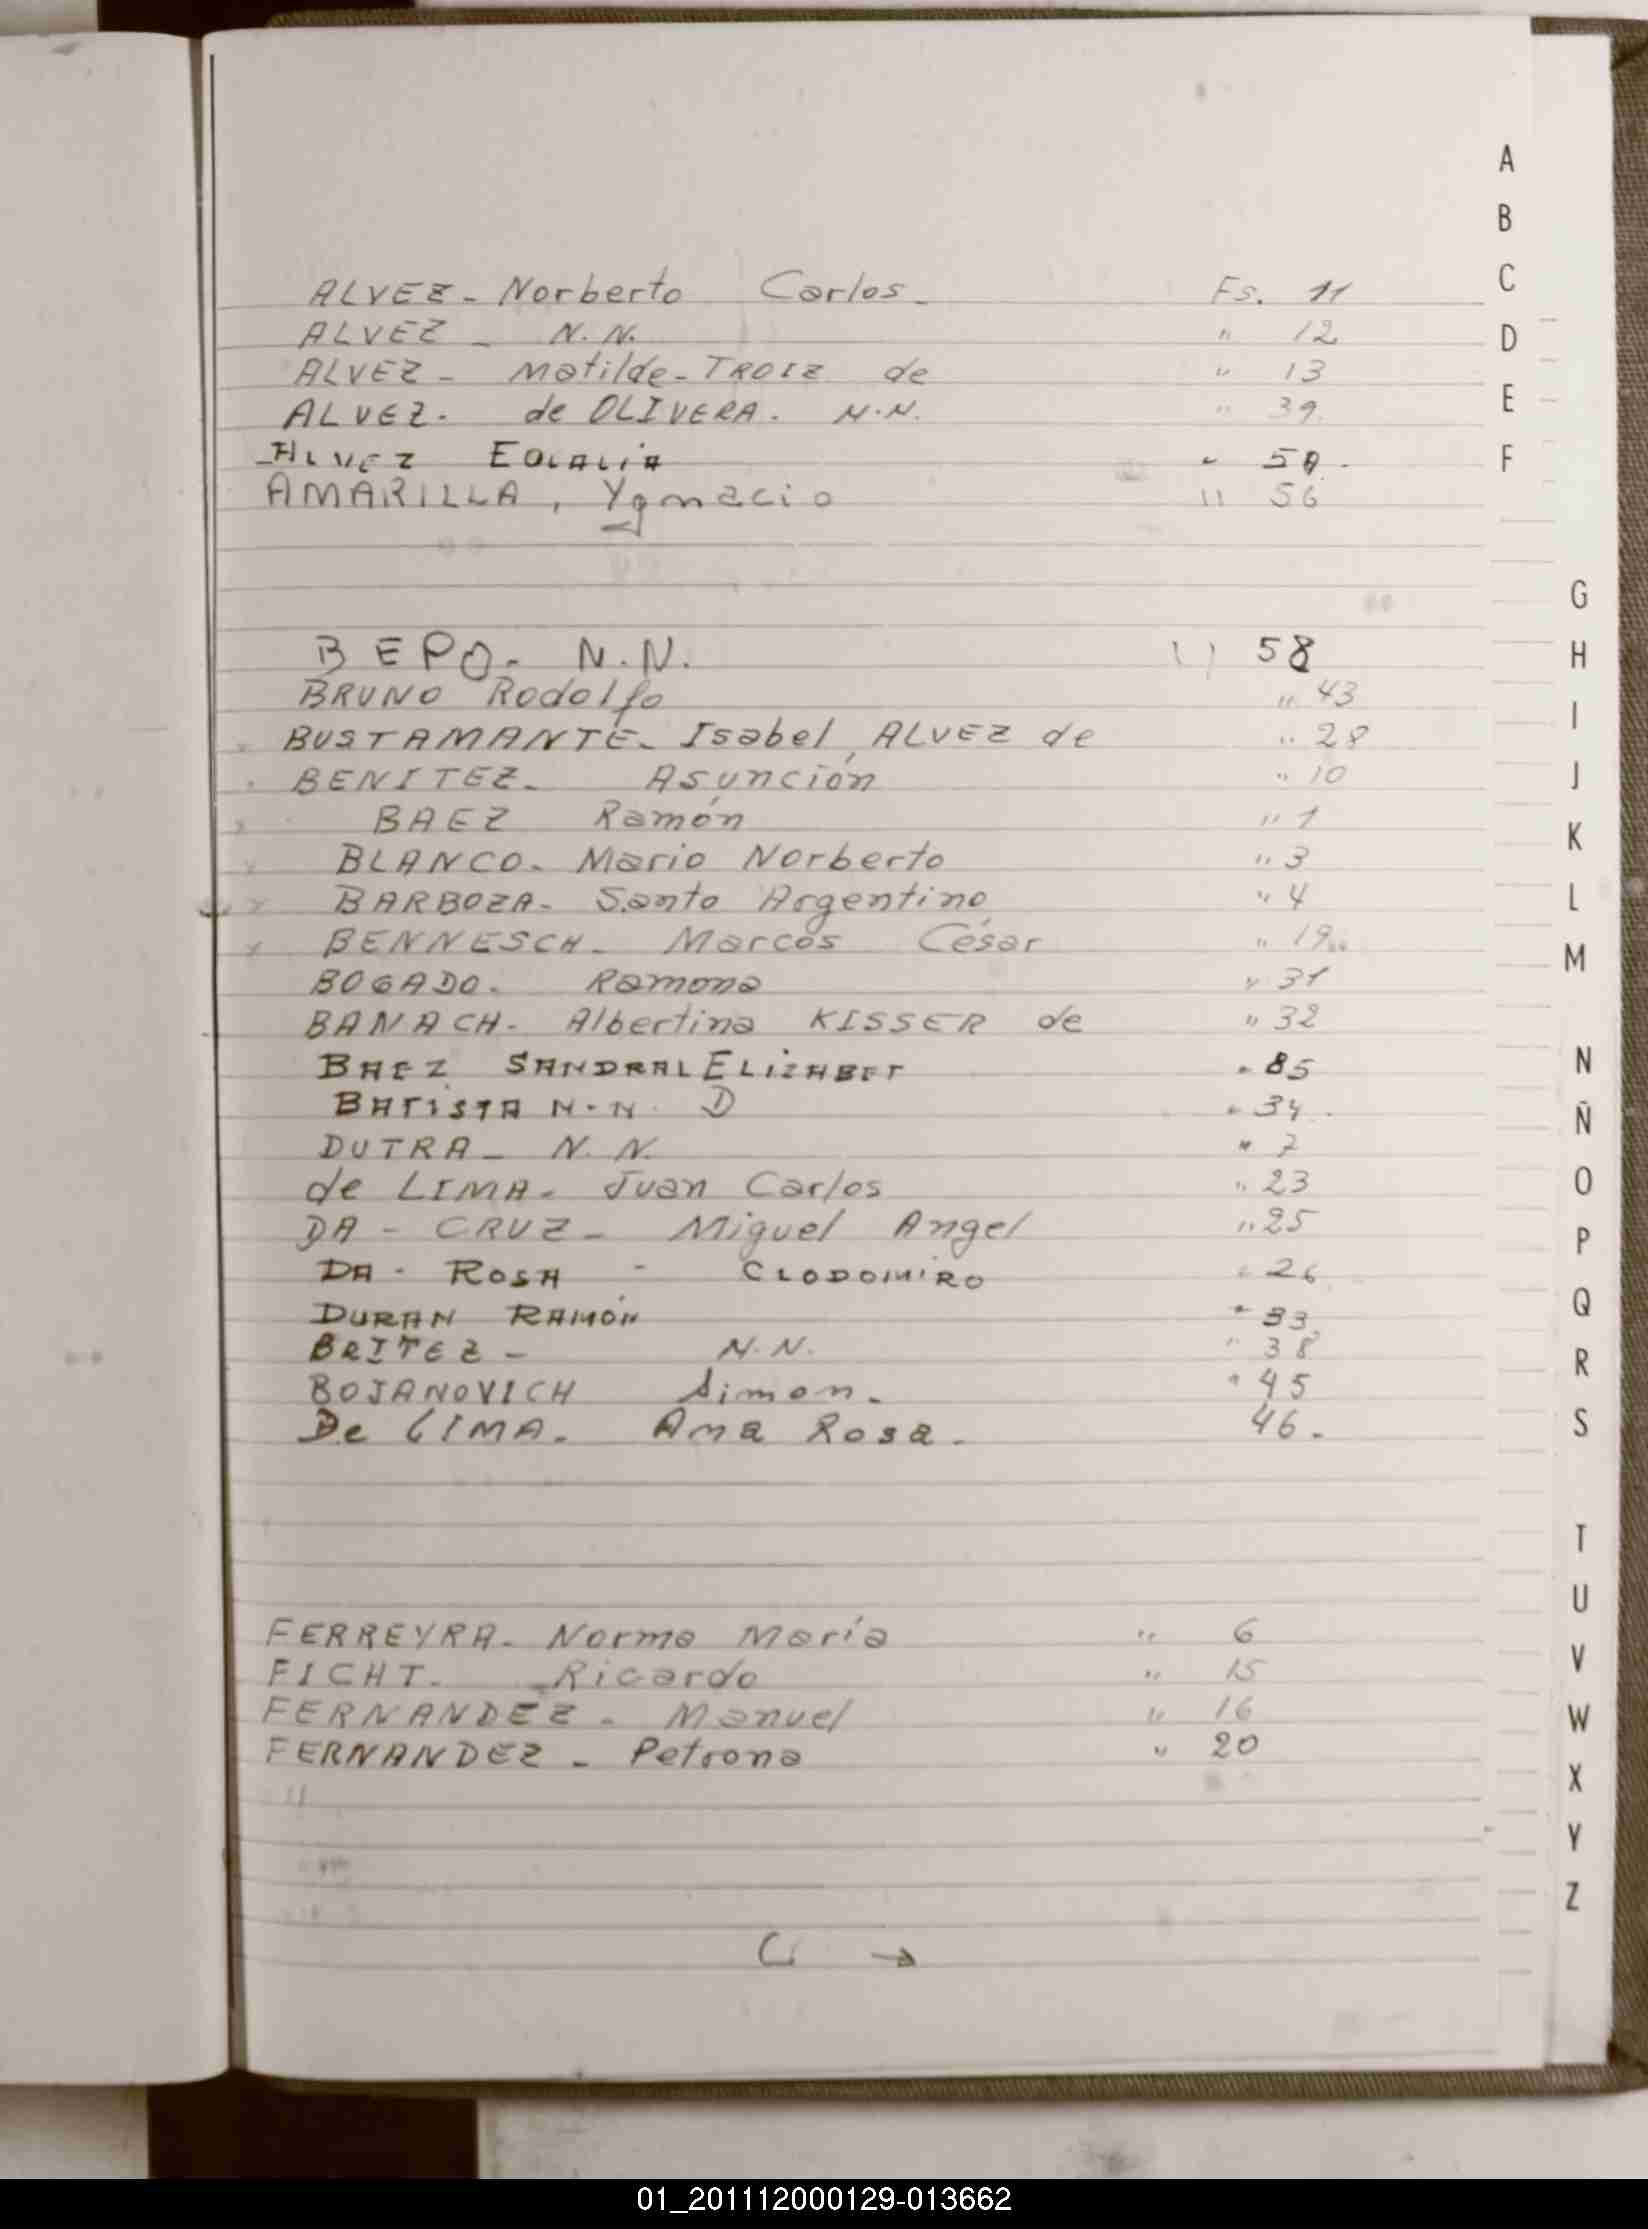 ALVEZ - Norberto Carlos - Fs. 11
ALVEZ - N.N. " 12
ALVEZ - Matilde - TROIZ de " 13
ALVEZ - de OLIVERA. N.N. " 39
ALVEZ EOLALIA "
AMARILLA, Ygnacio " 56
BEPO - N.N. " 58
BRUNO Rodolfo " 43
BUSTAMANTE - Isabel, ALVEZ de " 28
BENITEZ - Asunción " 10
BAEZ Ramón " 1
BLANCO - Mario Norberto " 3
BARBOZA - Santo Argentino " 4
BENNESCH - Marcos César " 19
BOGADO - Ramona " 31
BANACH - Albertina KISSER de " 32
BAEZ SANDRAL ELIZABET " 85
BATISTA N.N. D " 34.
DUTRA - N.N. " 7
de LIMA - Juan Carlos " 23
DA - CRUZ - Miguel Angel " 25
DA - ROSA - CLODOMIRO " 26
DURAN RAMÓN " 33
BRITEZ - N.N. " 38
BOJANOVICH Simon. " 45
De LIMA. Ana Rosa. 46.
FERREYRA - Norma María " 6
FICHT - Ricardo " 15
FERNANDEZ - Manuel " 16
FERNANDEZ - Petrona " 20
→
A
B
C
D
E
F
G
H
I
J
K
L
M
N
Ñ
O
P
Q
R
S
T
U
V
W
X
Y
Z
01_201112000129-013662